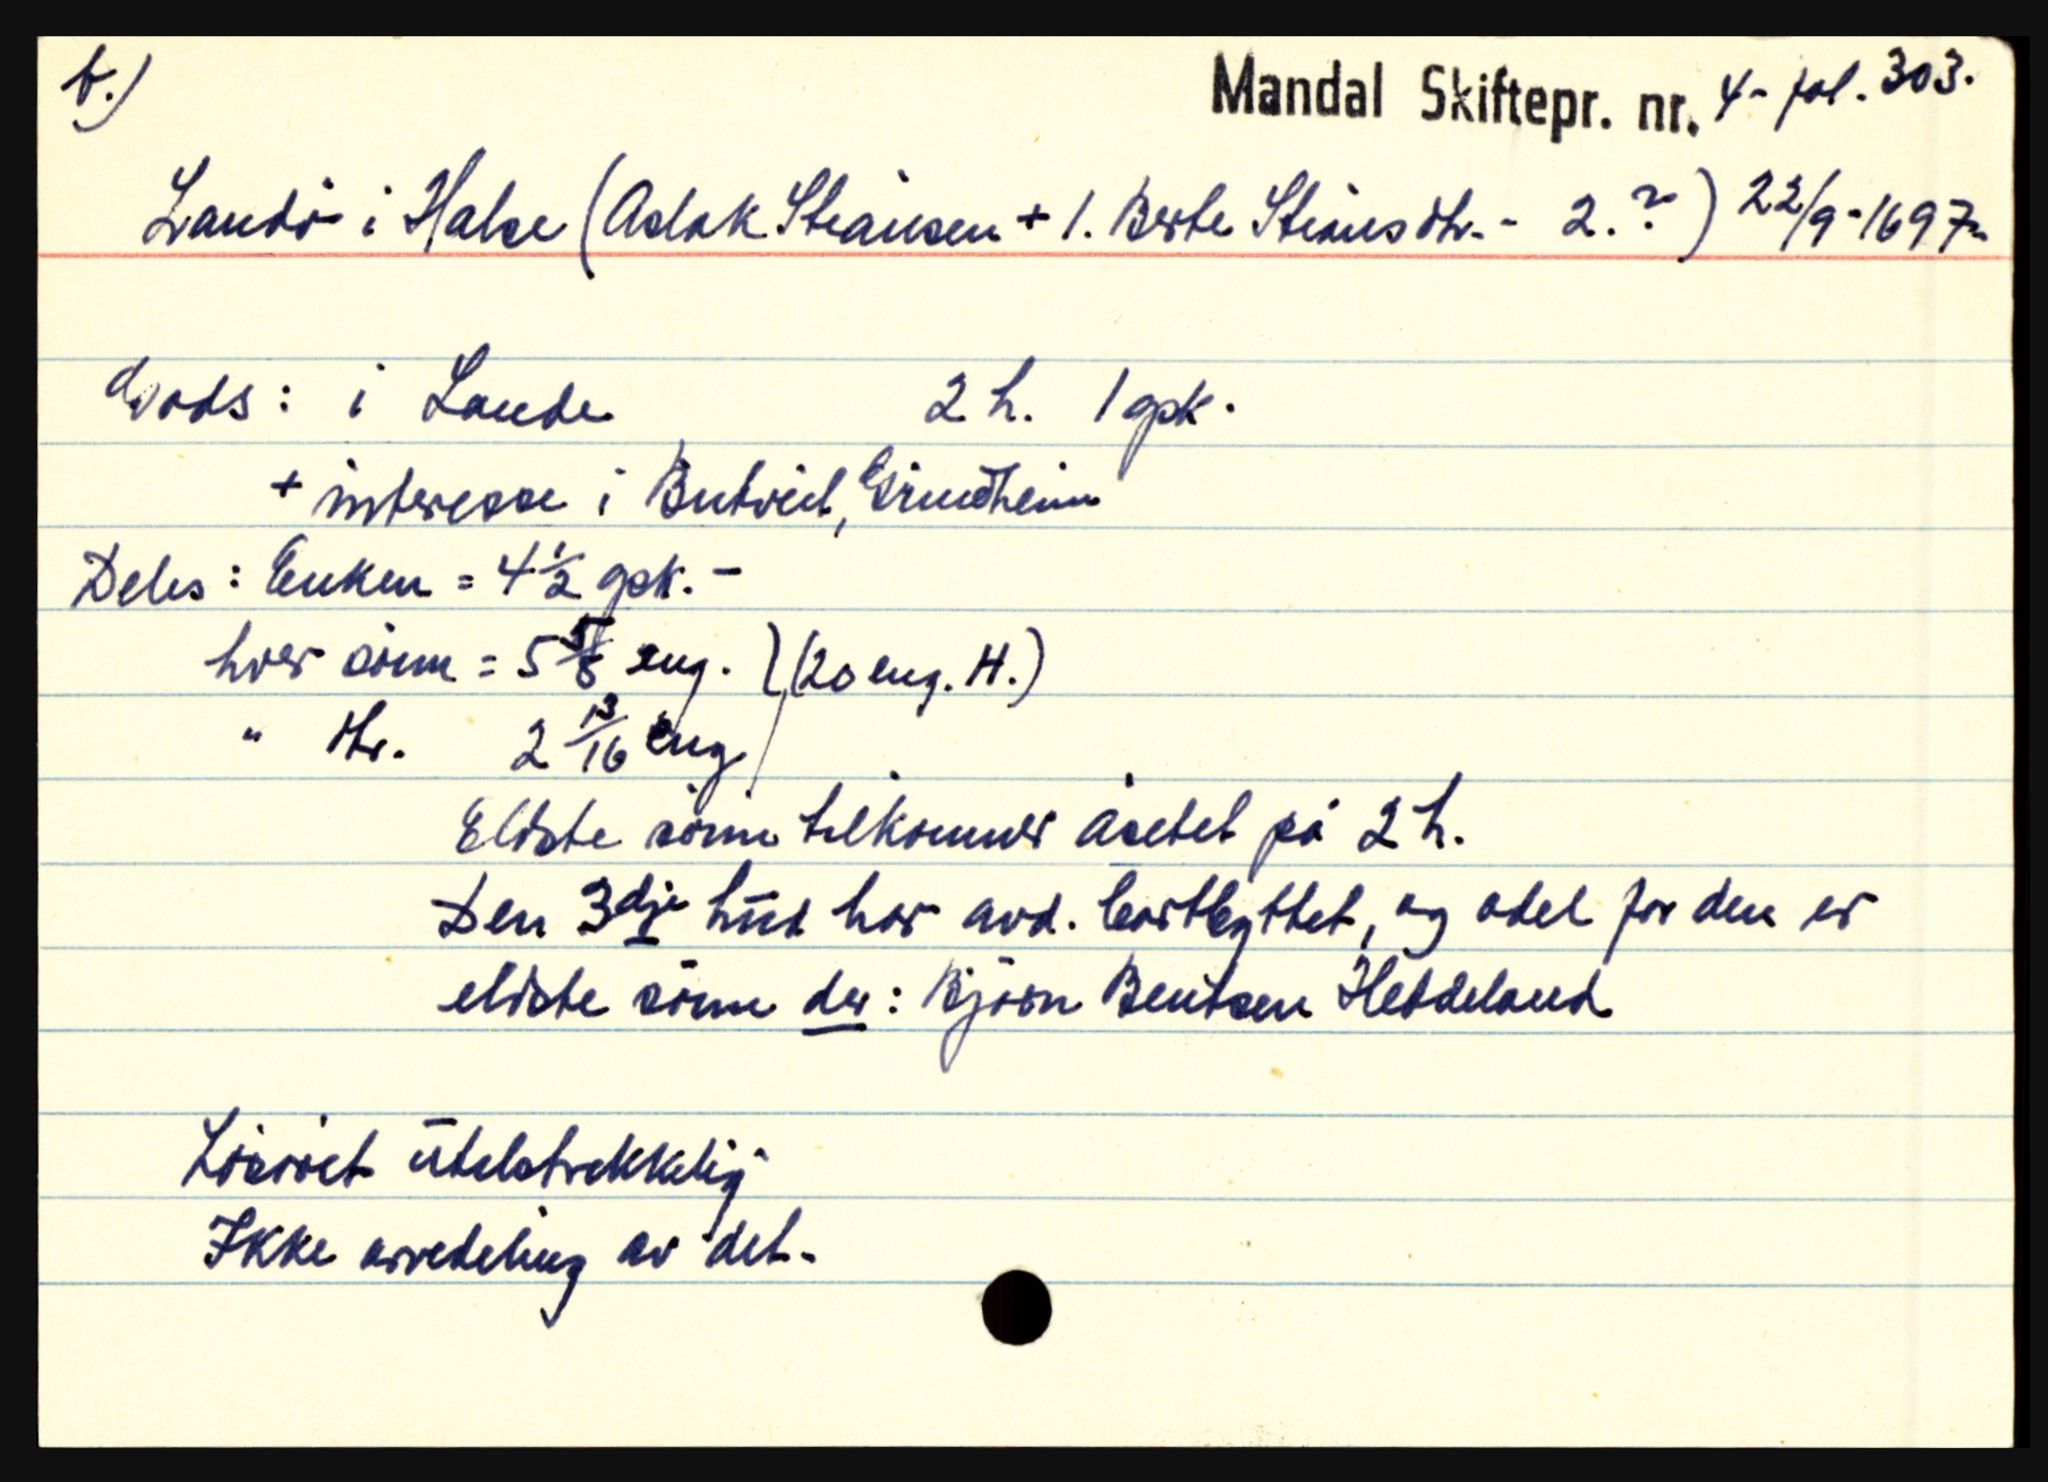 b.)
Mandal Skiftepr. nr. 4 - fol. 303.
Landø i Halse (Aslak Steinsen + 1. Berte Steinsdtr. - 2. ?) 22/9-1697-
Gods: i Lande 2 h. 1 gsk.
+ interesse i Butveit, Grindheim
Deles: Enken = 4 1/2 gsk. -
hver sønn = 5 5/8 eng. } (20 eng. H.)
" dtr. 2 13/16 eng
Eldste sønn tilkommer åsetet på 2 h.
Den 3dje hud har avd. bortbyttet, og odel for den er
eldste sønn der: Bjørn Bentsen Heddeland
Løsøret utilstrekkelig
Ikke arvedeling av det.